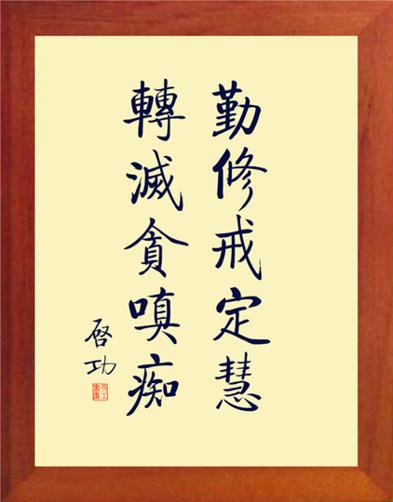 勤修戒定慧
轉滅貪嗔痴
啓功